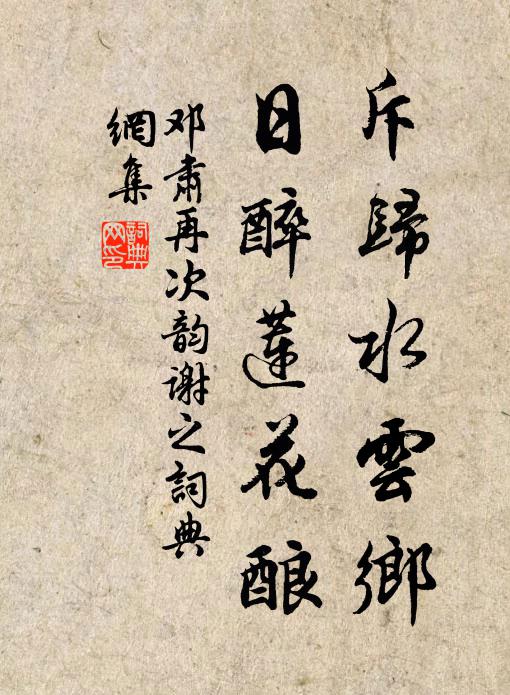 斥歸水雲鄉
日醉蓮花酿
邓肅再次韵謝之詞典
網集
詞典
网印